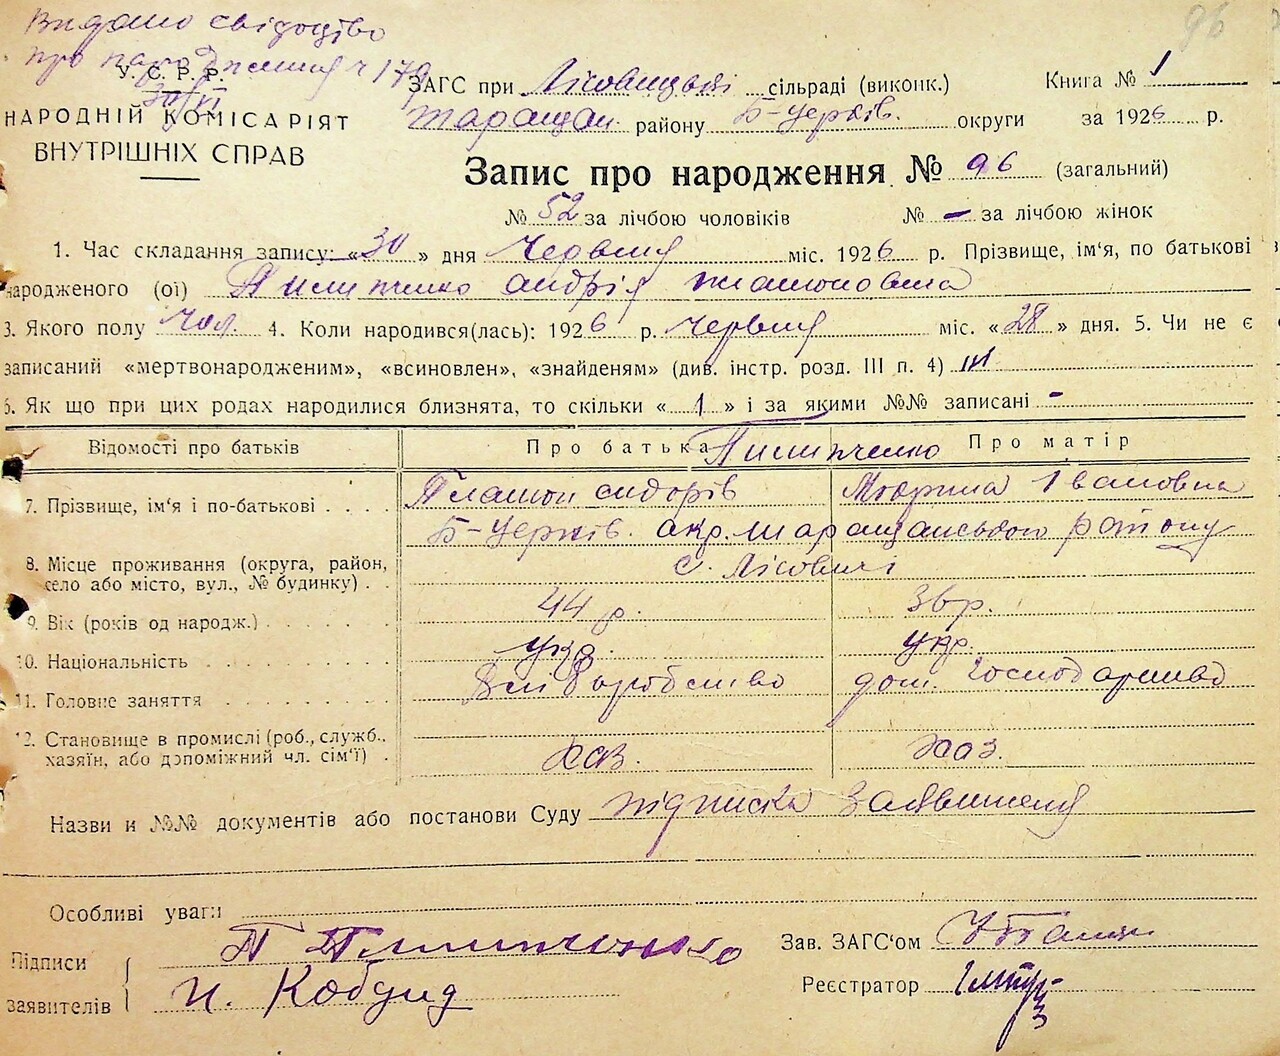 Видано свідоцтво
про народження № 179
30/VI
96
У. С. Р. Р.
НАРОДНІЙ КОМІСАРІЯТ
ВНУТРІШНІХ СПРАВ
ЗАГС при Лісовицькі сільраді (виконк.) Книга № 1
Таращан. району Б-Церків. округи за 1926 р.
Запис про народження № 96 (загальний)
№ 52 за лічбою чоловіків № - за лічбою жінок
1. Час складання запису: «30» дня Червня міс. 1926 р. Прізвище, ім'я, по батькові
народженого (ої) Пилипченко андрія Платоновича
3. Якого полу Чол. 4. Коли народився(лась): 1926 р. Червня міс. «28» дня. 5. Чи не є
записаний «мертвонародженим», «всиновлен», «знайденям» (див. інстр. розд. III п. 4) ні
6. Як що при цих родах народилися близнята, то скільки « 1 » і за якими №№ записані -
Відомості про батьків Про батька Пилипченко Про матір
7. Прізвище, ім'я і по-батькові Платон сидорів Мотрина Івановна
8. Місце проживання (округа, район, село або місто, вул., № будинку) Б-Церків. окр. таращанського району
с. Лісовичі
9. Вік (років од народж.) 44 р. 36 р.
10. Національність укр. укр.
11. Головне заняття хліборобство дом. господарство
12. Становище в промислі (роб., служб., хазяїн, або допоміжний чл. сім'ї) хаз. хаз.
Назви и №№ документів або постанови Суду підписка заявителя
Особливі уваги
Підписи заявителів П Пилипченко
Зав. ЗАГС'ом
Реєстратор